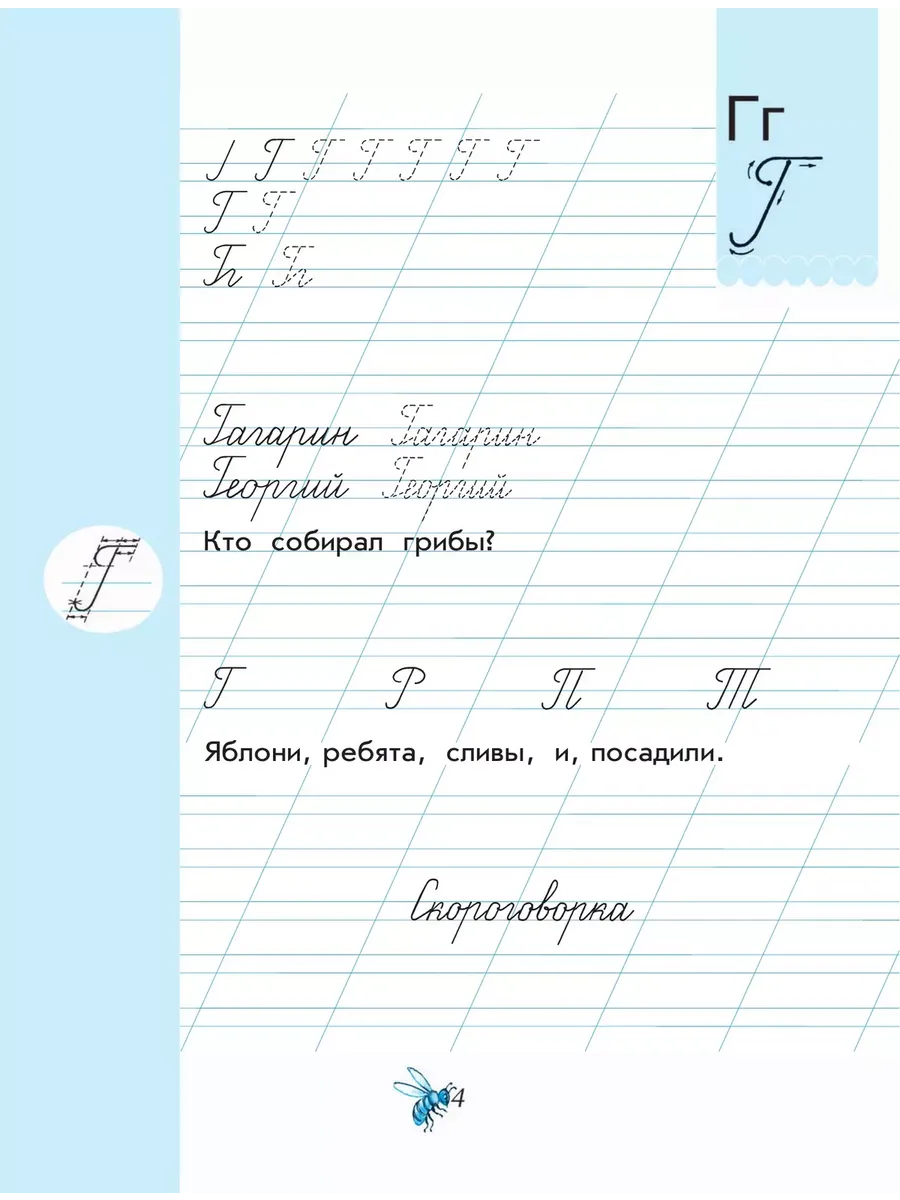 Гг
Г
Г Г Г Г Г Г
Г Г
Гь Гь
Гагарин Гагарин
Георгий Георгий
Кто собирал грибы?
Г
Г Р П Т
Яблони, ребята, сливы, и, посадили.
Скороговорка
4